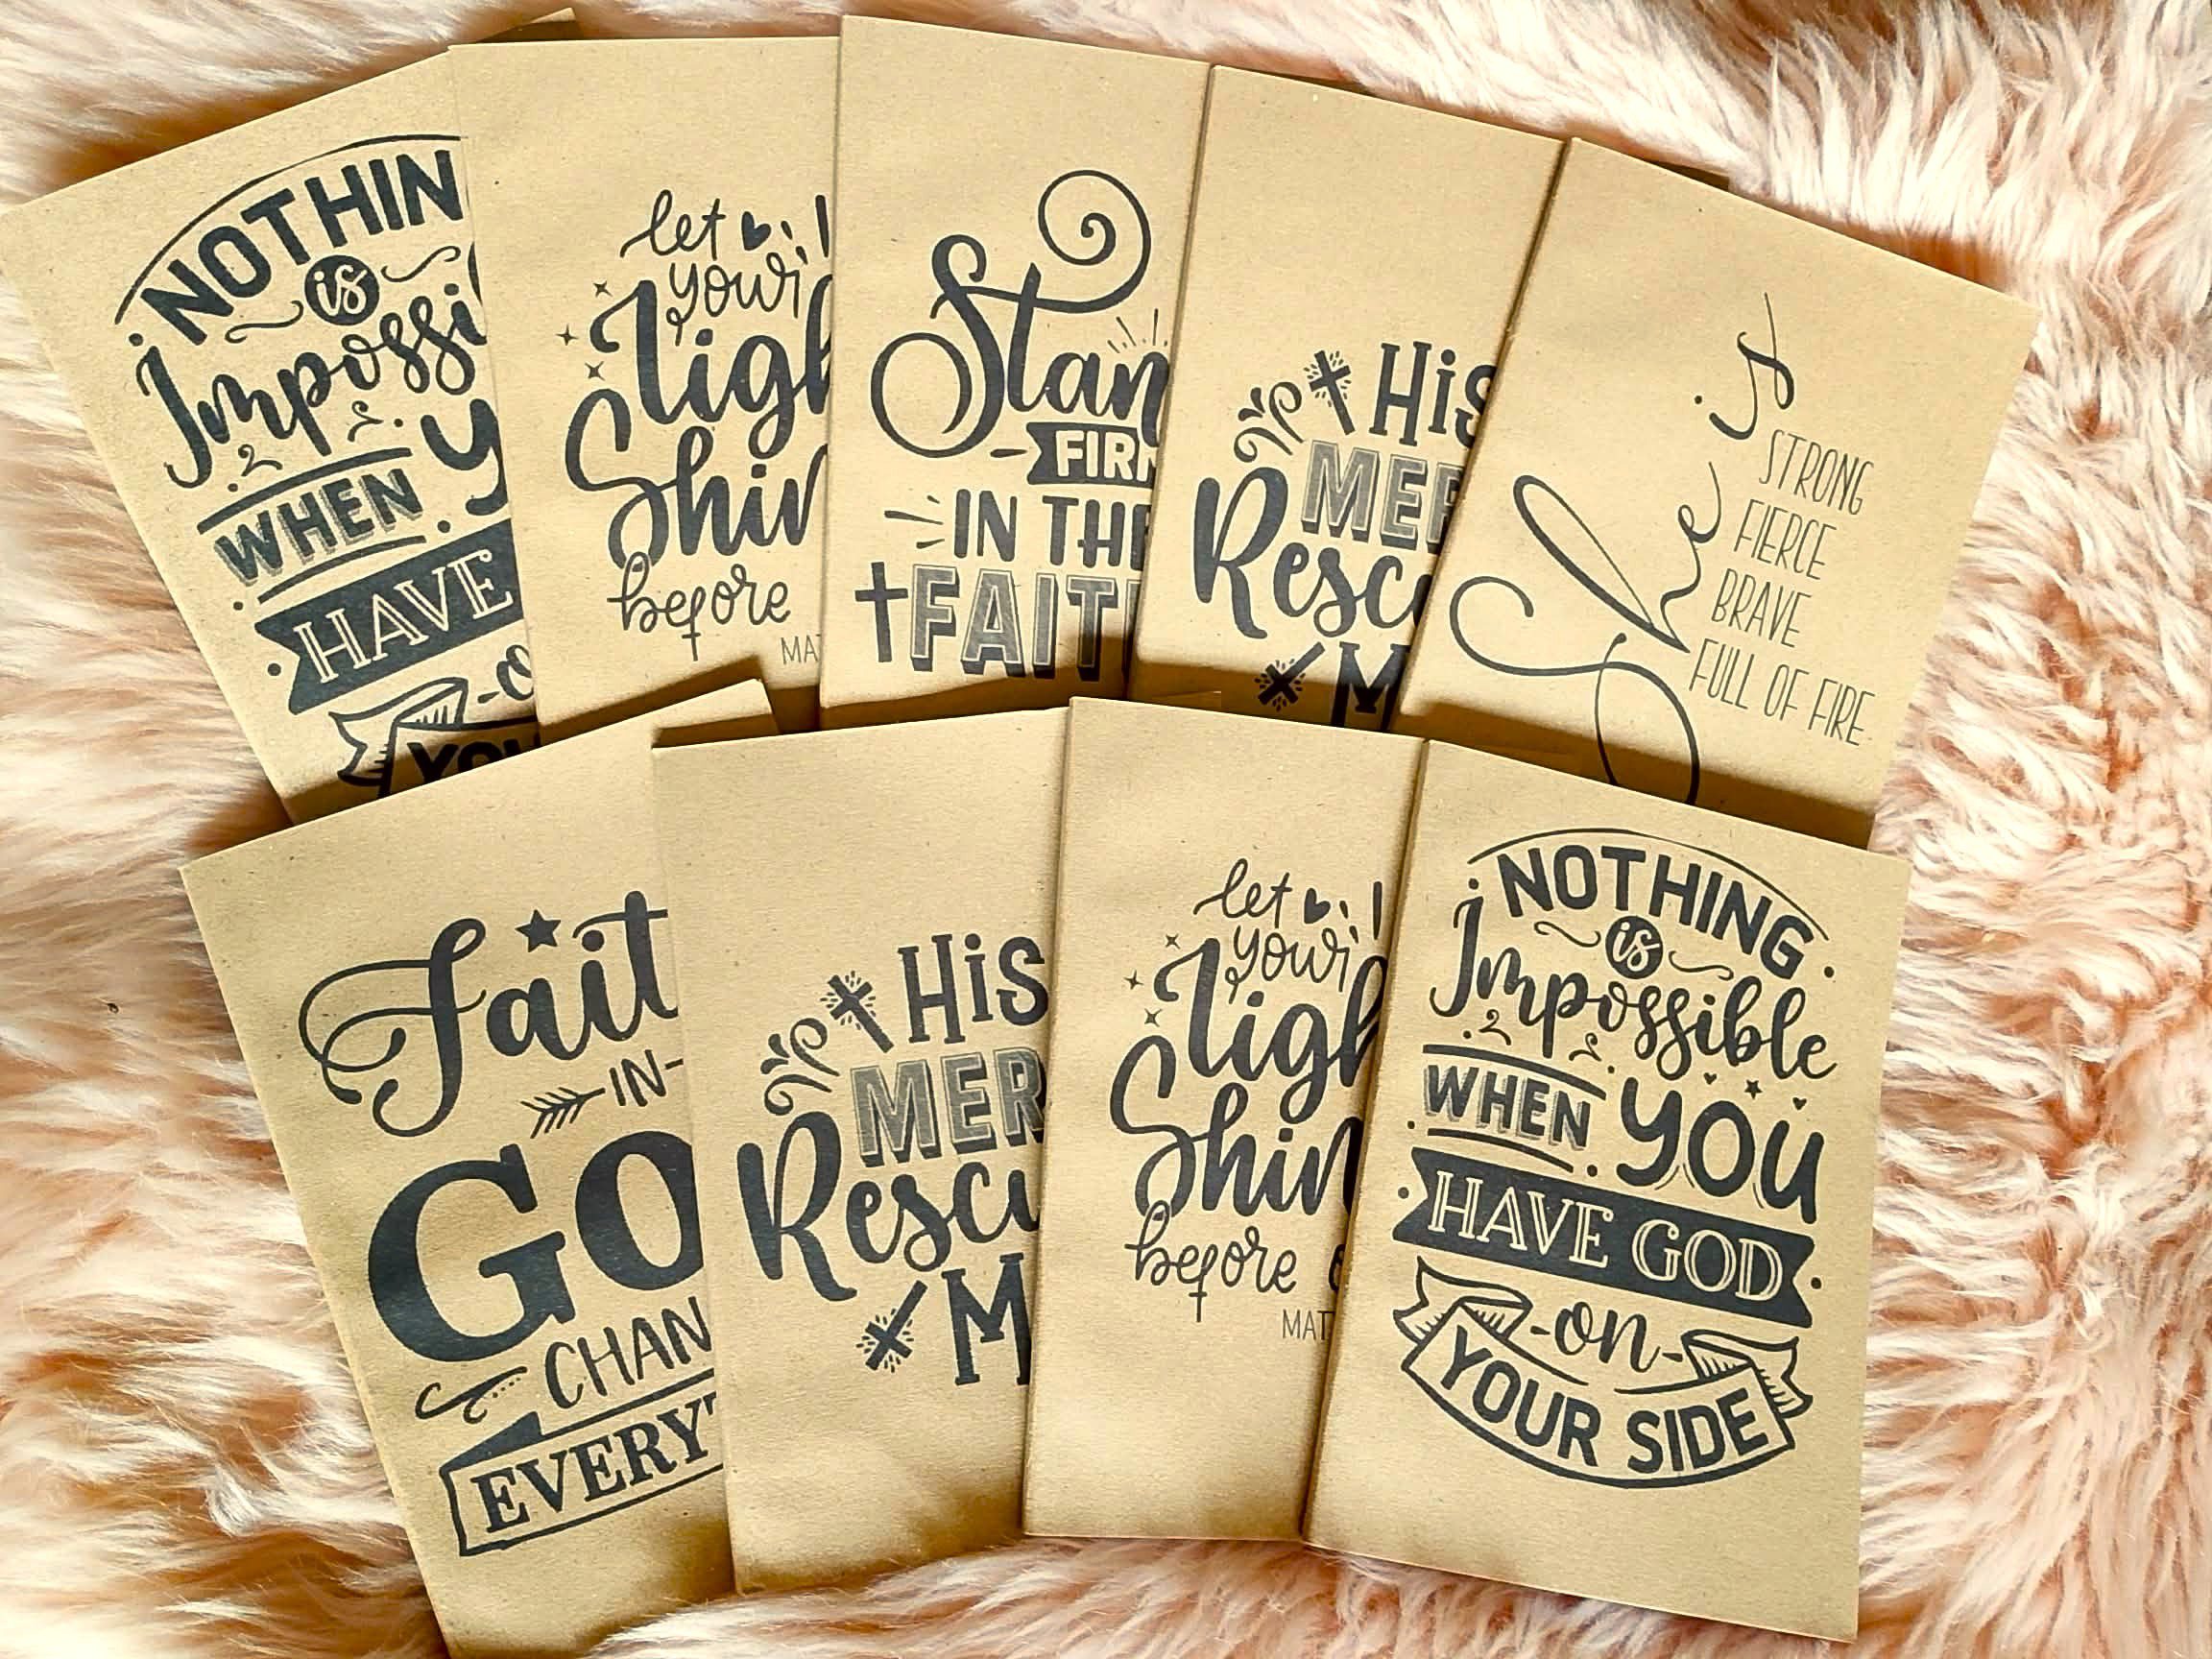 NOTHIN
is
Impossi
WHEN Y
HAVE
-o
YOU
let
your
Ligh
Shin
before
MAT
Stan
FIRM
IN THE
FAIT
His
MER
Resc
M
She is
STRONG
FIERCE
BRAVE
FULL OF FIRE
Fait
IN
GO
CHAN
EVERYT
His
MER
Rescu
M
let
your
Ligh
Shin
before o
MAT
NOTHING
is
Impossible
WHEN YOU
HAVE GOD
-on-
YOUR SIDE